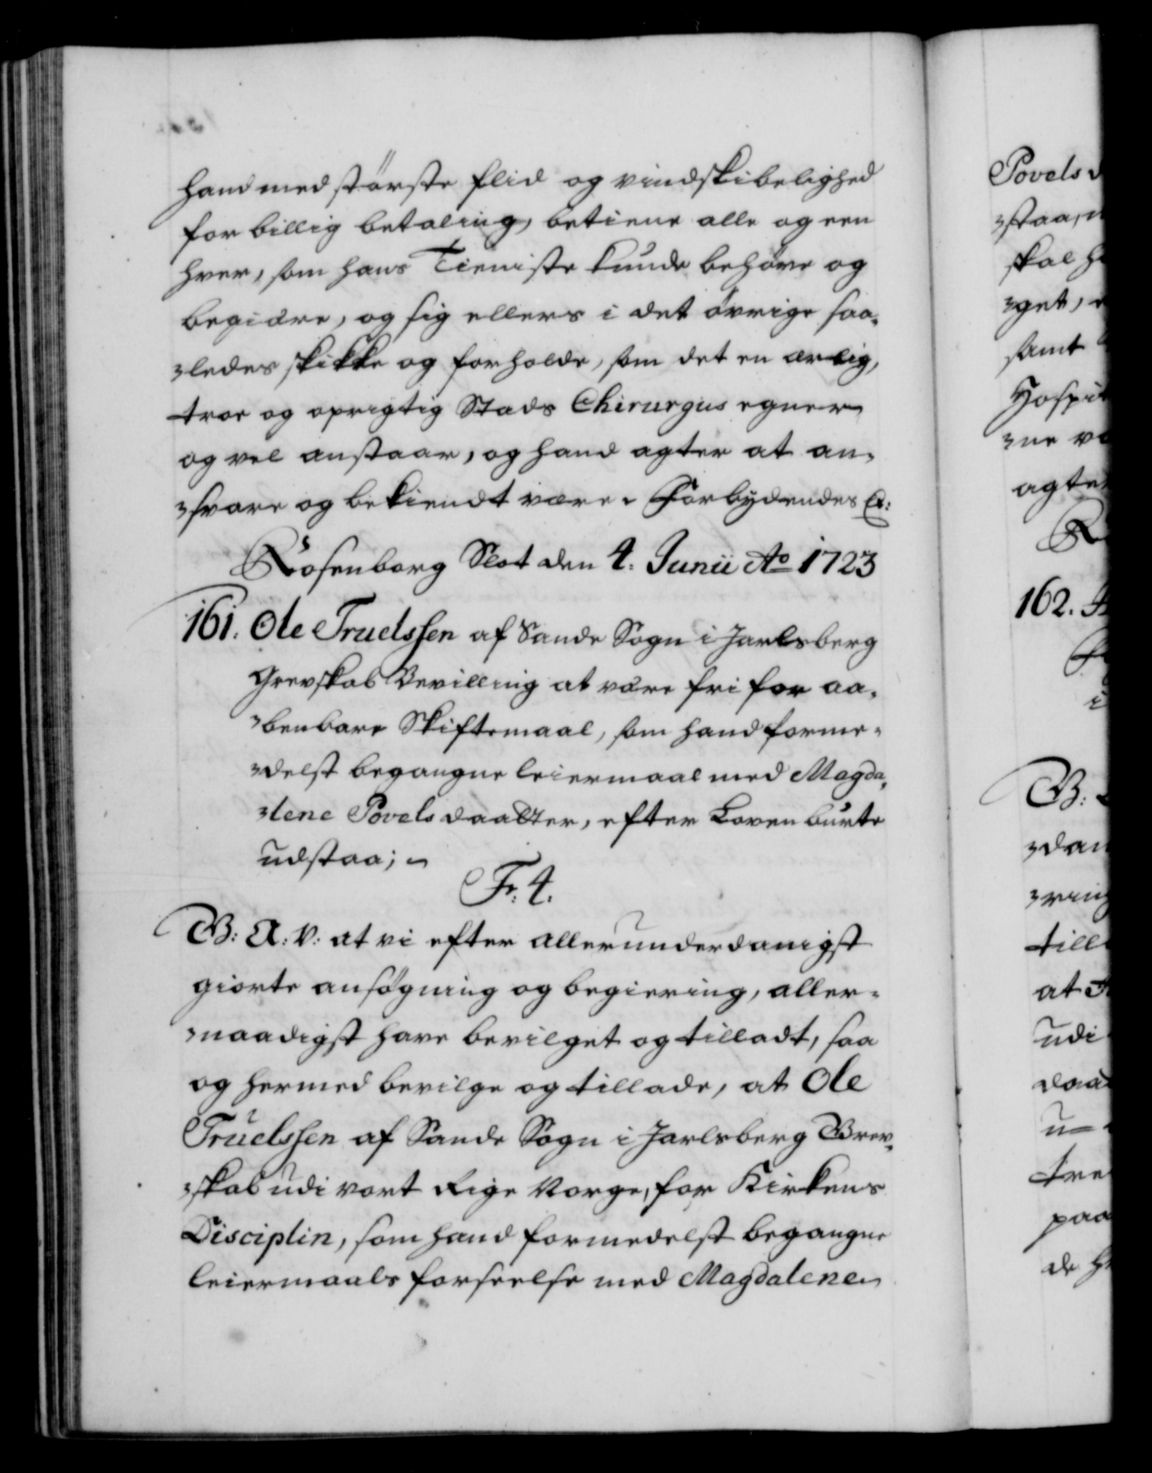 hand med største flid og vindskibelighed
for billig betaling, betiene alle og een
hver, som hans Tieniste kunde behøve og
begiære, og sig ellers i det øvrige saa-
-ledes skikke og forholde, som det en ærlig,
troe og oprigtig Stads Chirurgus egner
og vel anstaar, og hand agter at an-
-svare og bekiendt være. Forbydendes &:
Rosenborg Slot den 4. Junii Ao 1723
161. Ole Truelssen af Sande Sogn i Jarlsberg
Grevskab Bevilling at være fri for aa-
-benbare Skiftemaal, som hand forme-
-delst begangne leiermaal med Magda-
-lene Povels daatter, efter Loven burte
udstaa;
Fr. 4.
G: A: V: at vi efter allerunderdanigst
giorte ansøgning og begiering, aller-
-naadigst have bevilget og tilladt, saa
og hermed bevilge og tillade, at Ole
Truelssen af Sande Sogn i Jarlsberg Grev-
-skab udi vort Rige Norge, for Kirkens
Disciplin, som hand formedelst begangne
leiermaals forseelse med Magdalene
Povels d
-staa,
skal
-get,
samt
Hospit
-ne
agter
162.
G:
-dan
-ring
till
at
udi
daa
tre
paa
de